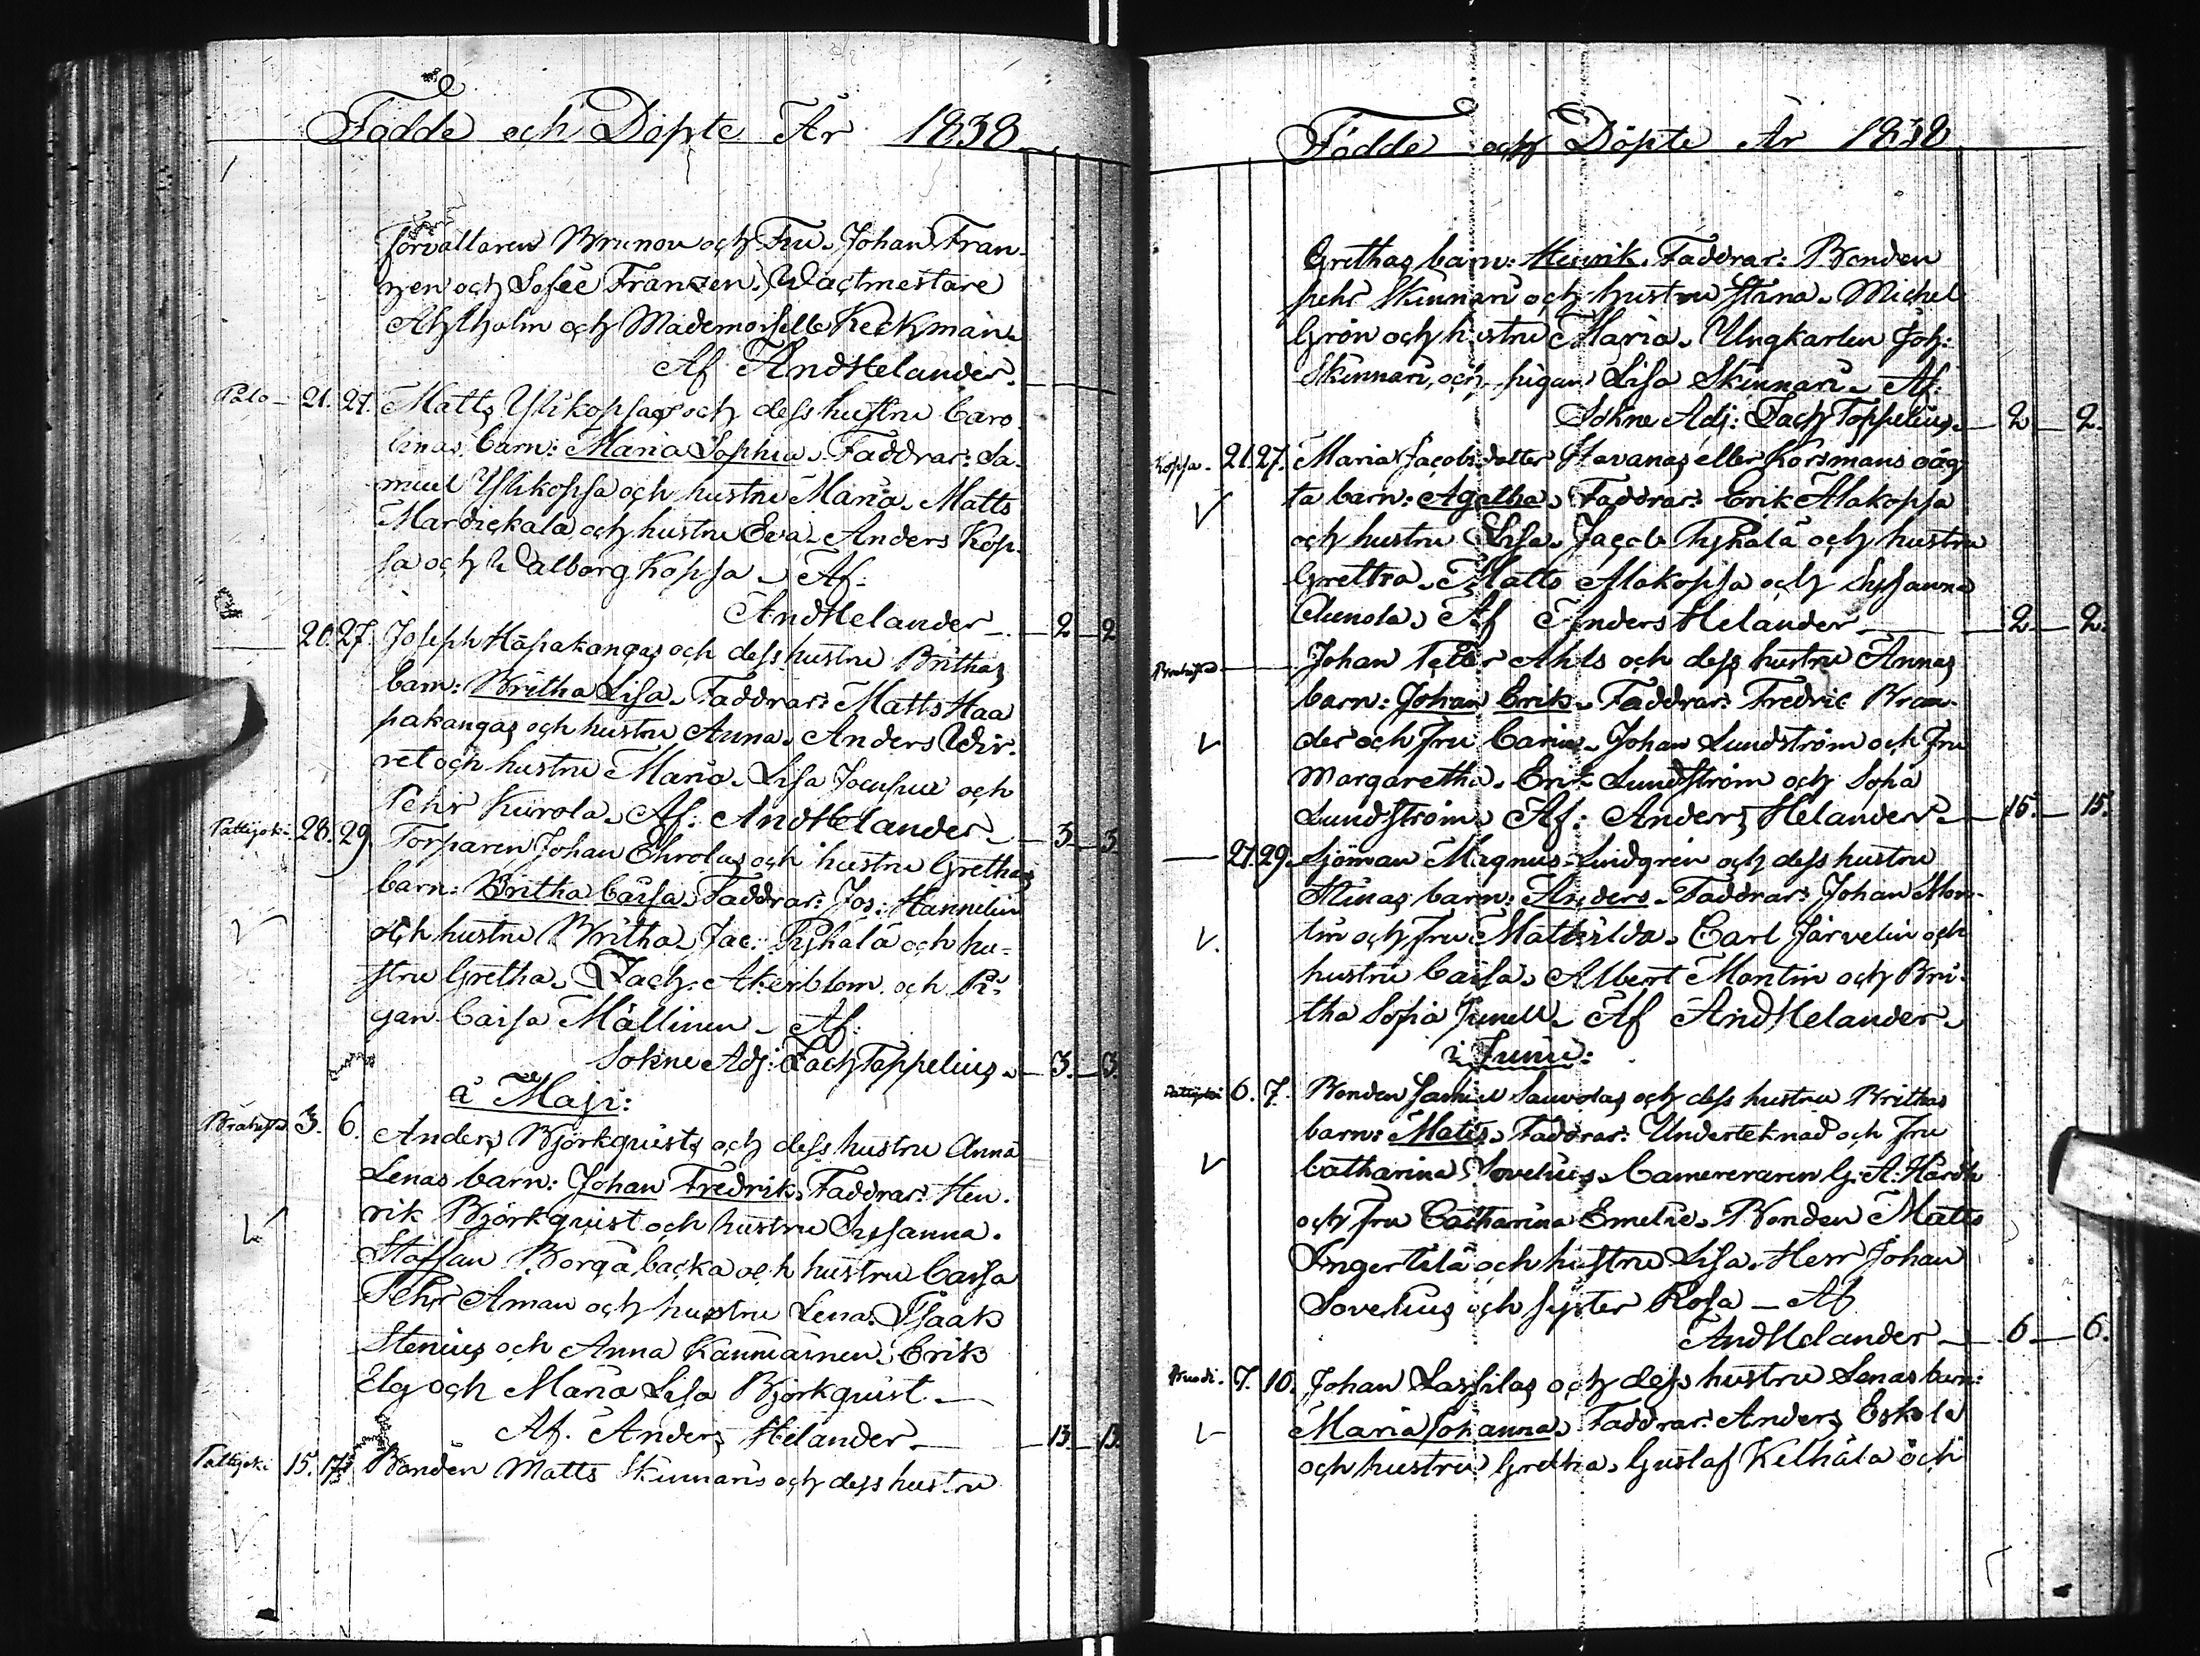 Födde och Döpte År 1838
förvaltaren Brunou och Fru. Johan Fran-
zen och Sofie Franzen. Wactmestare
Ahlholm och Mademoiselle Keckman.
Af AndHelander.
Palo - 21. 27. Matts Ylikopsas och dess hustru Caro-
linas barn: Maria Sophia. Faddrar: Sa-
muel Ylikopsa och hustru Maria. Matts
Mardickala och hustru Eva. Anders Kop-
sa och Walborg Kopsa. Af.
AndHelander - 2 - 2
— 20. 27. Joseph Hapakangas och dess hustru Brithas
barn: Britha Lisa. Faddrar: Matts Haa
pakangas och hustru Anna. Anders Wir-
ret och hustru Maria. Lisa och
Pehr Kurola. Af: AndHelander - 3 - 3
Pattijoki 28. 29. Torparen Johan Ehrolas och hustru Grethas
barn: Britha Caisa. Faddrar: Jos: Hannelin
och hustru Britha. Jac: Pyhälä och hu-
stru Gretha. Zach: Akerblom och Pi-
gan Caisa Mällinen. Af:
Sokne Adj: Zach Toppelius. - 3. - 3.
i Maji:
Brahestad 3. 6. Anders Björkquists och dess hustru Anna
Lenas barn: Johan Fredrik. Faddrar: Hen-
rik Björkquist och hustru Susanna.
Staffan Borgabacka och hustru Caisa
Pehr Aman och hustru Lena. Isaak
Stenius och Anna . Erik
Elg och Maria Lisa Björkquist.
Af. Anders Helander - 13 - 13
Pattijoki 15. 17. Bonden Matts Skinnaris och dess hustru
Födde och Döpte År 1838
Grethas barn: Henrik. Faddrar: Bonden
Pehr Skinnari och hustru Stina. Michel
Grön och hustru Maria. Ungkarlen Joh:
Skinnari, och pigan Lisa Skinnari. Af:
Sokne Adj: Zach Toppelius. - 2 - 2.
Kopsa. 21. 27. Maria Jacobsdotter Stavanas eller Korsmans oäg-
ta barn: Agatha. Faddrar: Erik Alakopsa
och hustru Lisa. Jacob Pyhälä och hustru
Gretha. Matts Alakopsa och Susanna
. Af Anders Helander - 2 - 2.
Brahestad — Johan Peter Ahls och dess hustru Annas
barn: Johan Erik. Faddrar: Fredric Bran-
der och Fru Carin. Johan Lundström och Fru
Margaretha. Erik Lundström och Sofia
Lundström. Af: Anders Helander - 15. - 15.
— 27. 29. Sjöman Magnus Lindgren och dess hustru
Stinas barn: Anders. Faddrar: Johan Mon-
tin och Fru Mathilda. Carl Järvelin och
hustru Caisa. Albert Montin och Bri-
tha Sofia Junell. Af AndHelander.
i Junii:
Pattijoki 6. 7. Bonden Samuel Sauvolas och dess hustru Brithas
barn: Matts. Faddrar: Underteknad och Fru
Catharina Sovelius. Camereraren G. A. Hårdh
och Fru Catharina Emelie. Bonden Matts
Ingertilä och hustru Lisa. Herr Johan
Sovelius och syster Rosa - Af
AndHelander - 6 - 6.
7. 10. Johan Lassilas och dess hustru Lenas barn:
Maria Johanna. Faddrar: Anders Eskola
och hustru Gretha. Gustaf Kelhälä och